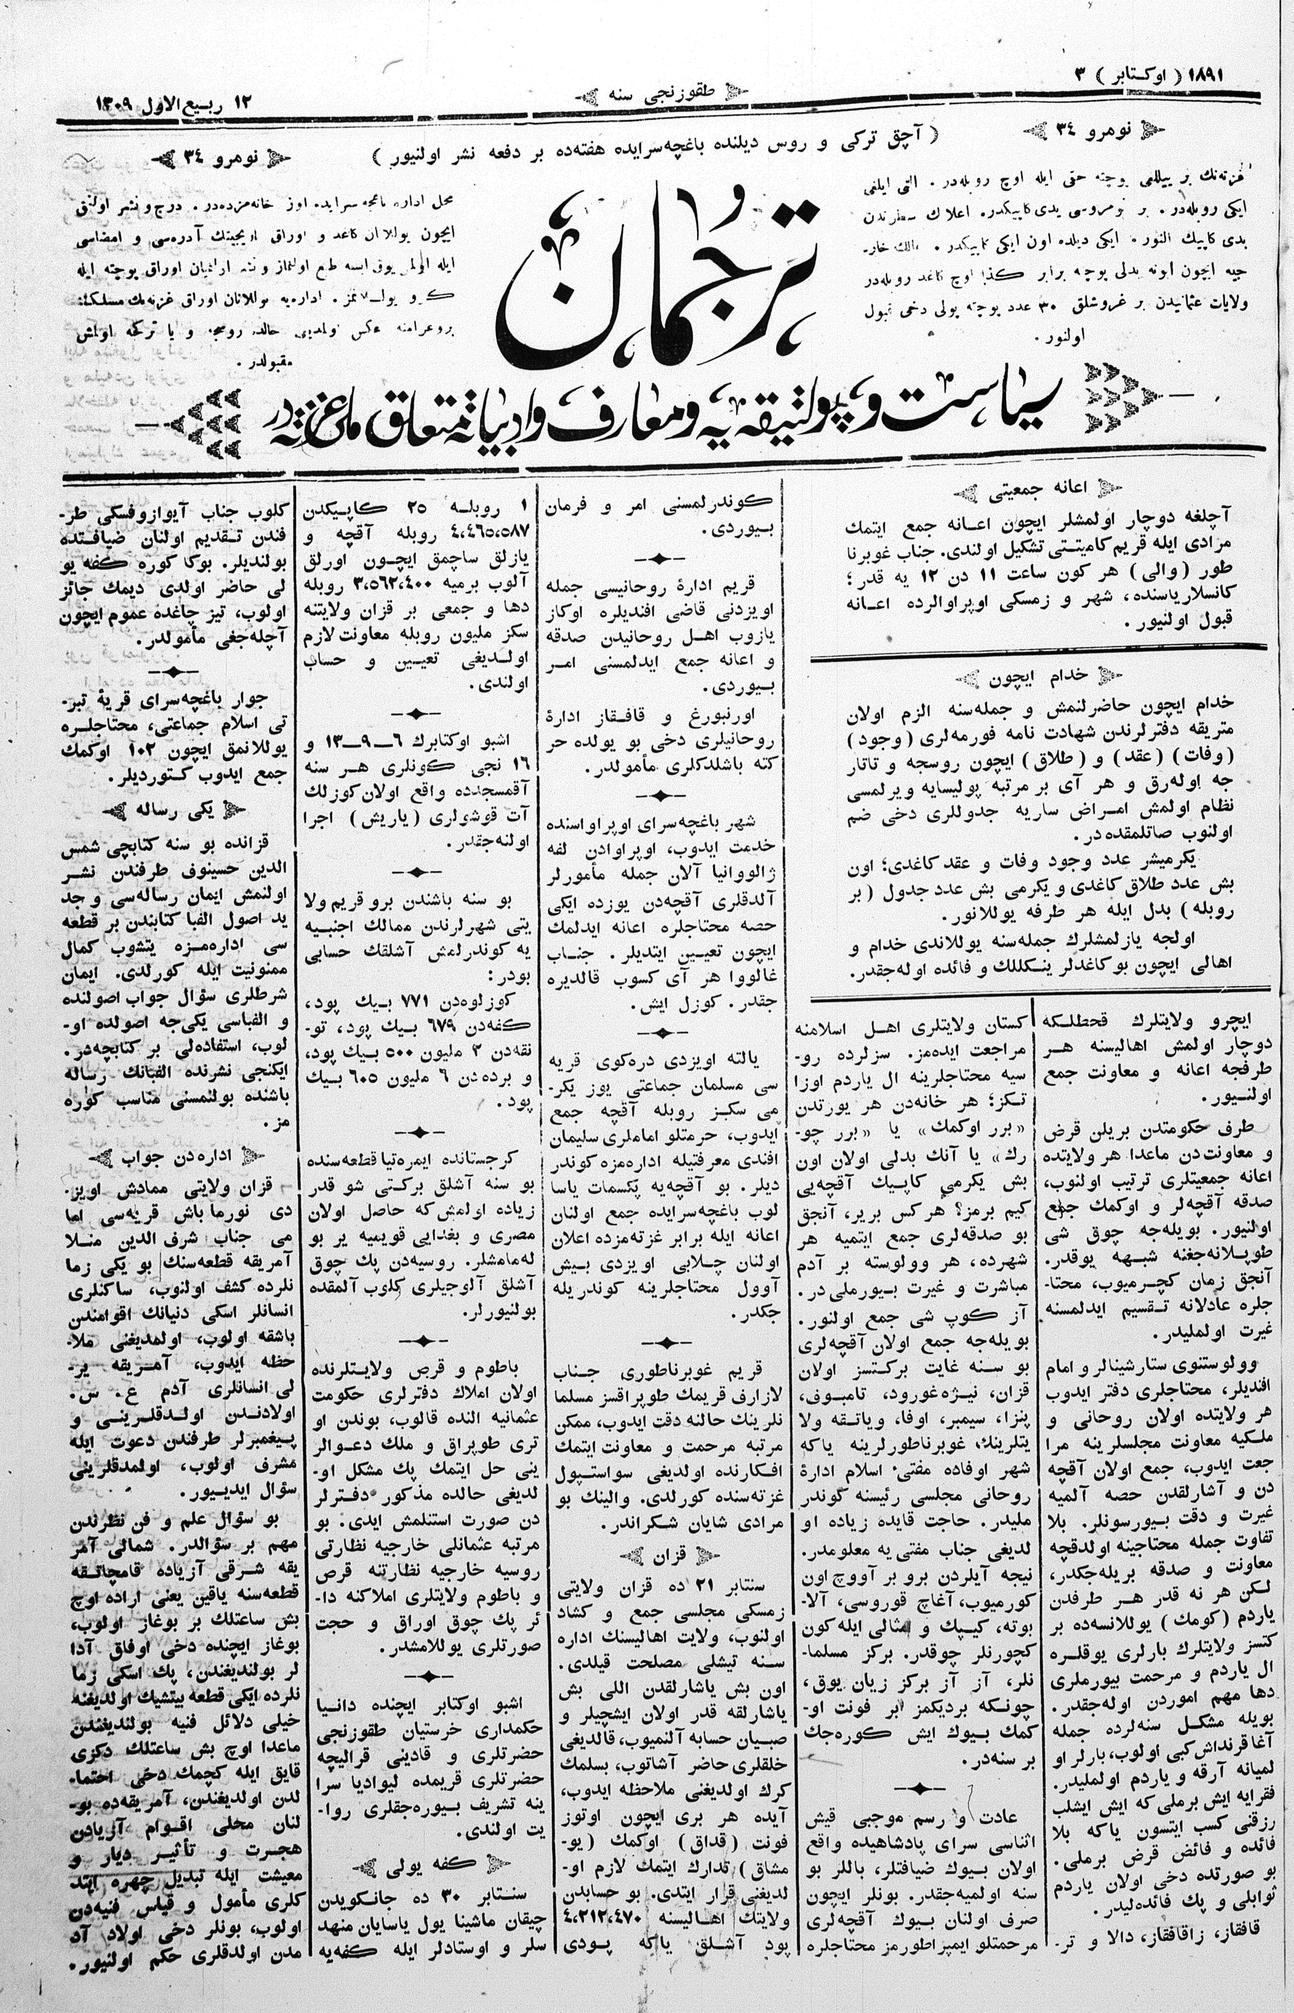 ١٨٩١ ( اوكتابر ) ٣
طقوزنجى سنه
١٢ ربيع الاول ١٣٠٩
نومرو ٣٤
( آچق تركى و روس ديلنده باغچه‌سرايده هفته‌ده بر دفعه نشر اولنيور )
نومرو ٣٤
غزته‌نك بر ييللغى پوچته حقى ايله اوچ روبله‌در . التى ايلغى
ايكى روبله‌در . بر نومروسى يدى كاپيكدر. اعلانك سطرندن
يدى كاپيك النور . ايكى ديلده اون ايكى كاپيكدر .
جيه ايچون ابونه بدلى پوچه برابر اوچ كاغد روبله‌در
ولايات عثمانيدن بر غروشلق ٣٠ عدد پوچته پولى دخى قبول
اولنور .
محل اداره باغچه سرايده اوز خانه‌مزده‌در . درج و نشر اولنق
ايچون يوللانان كاغد و اوراق
ايله
مقبولدر .
ترجمان
سياست و پولتيقه‌يه و معارف و ادبياته متعلق ملى غزته‌در
اعانه جمعيتى
آچلغه دوچار اولمشلر ايچون اعانه جمع ايتمك
مرادى ايله قريم كاميتتى تشكيل اولندى. جناب غوبرنا
طور (والى) هر كون ساعت ١١ دن ١٢ يه قدر؛
كانسلارياسنده، شهر و زمسكى اوپراوالرده اعانه
قبول اولنيور .
خدام ايچون
خدام ايچون حاضرلنمش و جمله‌سنه الزم اولان
متريقه دفترلرندن شهادت نامه فورمه‌لرى (وجود)
(وفات) (عقد) و (طلاق) ايچون روسجه و تاتار
جه اوله‌رق و هر آى بر مرتبه پوليسايه ويرلمسى
نظام اولمش امراض ساريه جدوللرى دخى ضم
اولنوب صاتلمقده‌در.
يكرميشر عدد وجود وفات و عقد كاغدى؛ اون
بش عدد طلاق كاغدى و يكرمى بش عدد جدول (بر
روبله) بدل ايله هر طرفه يوللانور.
اولجه يازلمشلرك جمله‌سنه يوللاندى خدام و
اهالى ايچون بو كاغدلر ينكللك و فائده اوله‌جقدر.
ايچرو ولايتلرك قحطلكه
دوچار اولمش اهاليسنه هر
طرفجه اعانه و معاونت جمع
اولنيور.
طرف حكومتدن بريلن قرض
و معاونت‌دن ماعدا هر ولايتده
اعانه جمعيتلرى ترتيب اولنوب،
صدقه آقچه‌لر و اوكمك جمع
اولنيور. بويله‌جه چوق شى
طوپلانه‌جغنه شبهه يوقدر.
آنجق زمان كچرميوب، محتا-
جلره عادلانه تقسيم ايدلمسنه
غيرت اولمليدر.
وولوستنوى ستارشينالر و امام
افنديلر، محتاجلرى دفتر ايدوب
هر ولايتده اولان روحانى و
ملكيه معاونت مجلسلرينه مرا
جعت ايدوب، جمع اولان آقچه
دن و آشلرقدن حصه آلميه
غيرت و دقت بيورسونلر. بلا
تفاوت جمله محتاجينه اولدقچه
معاونت و صدقه بريله‌جكدر،
لكن هر نه قدر هر طرفدن
ياردم (كومك) يوللانسه‌ده بر
كتسز ولايتلرك بارلرى يوقلره
ال ياردم و مرحمت بيورملرى
دها مهم اموردن اوله‌جقدر.
بويله مشكل سنه‌لرده جمله
آغا قرنداش كبى اولوب، بارلر او
لميانه آرقه و ياردم اولمليدر.
فقرايه ايش برملى كه ايش ايشلب
رزقنى كسب ايتسون ياكه بلا
فائده و فائض قرض برملى.
بو صورتده دخى اولان ياردم
ثوابلى و پك فائده‌ليدر.
قافقاز، زاقافقاز، دالا و تر-
كستان ولايتلرى اهل اسلامنه
مراجعت ايده‌مز. سزلرده رو-
سيه محتاجلرينه ال ياردم اوزا
تكز؛ هر خانه‌دن هر يورتدن
«برر اوكمك» يا «برر چو-
رك» يا آنك بدلى اولان اون
بش يكرمى كاپيك آقچه‌يى
كيم برمز؟ هركس برير، آنجق
بو صدقه‌لرى جمع ايتميه هر
شهرده، هر وولوسته بر آدم
مباشرت و غيرت بيورملى‌در.
آز كوپ شى جمع اولنور.
بويله‌جه جمع اولان آقچه‌لرى
بو سنه غايت بركتسز اولان
قزان، نيژه‌غورود، تامبوف،
پنزا، سيمبر، اوفا، وياتقه ولا
يتلرينك غوبرناطورلرينه ياكه
شهر اوفاده مفتى اسلام ادارۀ
روحانى مجلسى رئيسنه كوندر
مليدر. حاجت قايده زياده او
لديغى جناب مفتى يه معلومدر.
نيجه آيلردن برو بر آووچ اون
كورميوب، آغاچ قوروسى، آلا-
بوته، كيپك و مثالى ايله كون
كچورنلر چوقدر. بركز مسلما-
نلر، آز آز بركز زيان يوق،
چونكه برديكمز بر فونت او-
كمك بيوك ايش كوره‌جك
بر سنه‌در.
عادت و رسم موجبى قيش
اثناسى سراى پادشاهيده واقع
اولان بيوك ضيافتلر، باللر بو
سنه اولميه‌جقدر. بونلر ايچون
صرف اولنان بيوك آقچه‌لرى
مرحمتلو ايمپراطورمز محتاجلره
كوندرلمسنى امر و فرمان
بيوردى.
قريم ادارۀ روحانيسى جمله
اويزدنى قاضى افنديلره اوكاز
يازوب اهل روحانيدن صدقه
و اعانه جمع ايدلمسنى امر
بيوردى.
اورنبورغ و قافقاز ادارۀ
روحانيلرى دخى بو يولده حر
كته باشلدكلرى مأمولدر.
شهر باغچه سراى اوپراواسنده
خدمت ايدوب، اوپراوادن لفه
ژالووانيا آلان جمله مأمورلر
آلدقلرى آقچه‌دن يوزده ايكى
حصه محتاجلره اعانه ايدلمك
ايچون تعيين ايتديلر. جناب
غالووا هر آى كسوب قالديره
جقدر. كوزل ايش.
يالته اويزدى دره‌كوى قريه
سى مسلمان جماعتى يوز يكر-
مى سكز روبله آقچه جمع
ايدوب، حرمتلو اماملرى سليمان
افندى معرفتيله اداره‌مزه كوندر
ديلر. بو آقچه‌يه پكسمات ياسا
لوب باغچه‌سرايده جمع اولنان
اعانه ايله برابر غزته‌مزده اعلان
اولنان چلابى اويزدى بيش
آوول محتاجلرينه كوندريله
جكدر.
قريم غوبرناطورى جناب
لازارف قريمك طوپراقسز مسلما
نلرينك حالنه دقت ايدوب، ممكن
مرتبه مرحمت و معاونت ايتمك
افكارنده اولديغى سواستپول
غزته‌سنده كورلدى. والينك بو
مرادى شايان شكراندر.
قزان
سنتابر ٢١ ده قزان ولايتى
زمسكى مجلسى جمع و كشاد
اولنوب، ولايت اهاليسنك اداره
سنه تيشلى مصلحت قيلدى.
اون بش ياشارلقدن اللى بش
ياشارلقه قدر اولان ايشچيلر و
صبيان حسابه آلنميوب، قالديغى
خلقلرى حاضر آشاتوب، بسلمك
كرك اولديغنى ملاحظه ايدوب،
آيده هر برى ايچون اوتوز
فونت (قداق) اوكمك (يو-
مشاق) تدارك ايتمك لازم او-
لديغنى قرار ايتدى. بو حسابدن
ولايتك اهاليسنه ٤،٢١٢،٤٧٠
پود آشلق ياكه پودى
١ روبله ٢٥ كاپيكدن
٤،٤٦٥،٥٨٧ روبله آقچه و
يازلق ساچمق ايچون اورلق
آلوب برميه ٣،٥٦٢،٤٠٠ روبله
دها و جمعى بر قزان ولايتنه
سكز مليون روبله معاونت لازم
اولديغى تعيين و حساب
اولندى.
اشبو اوكتابرك ٦—٩—١٣ و
١٦ نجى كونلرى هر سنه
آقمسجدده واقع اولان كوزلك
آت قوشولرى (ياريش) اجرا
اولنه‌جقدر.
بو سنه باشندن برو قريم ولا
يتى شهرلرندن ممالك اجنبيه
يه كوندرلمش آشلقك حسابى
بودر:
كوزلوه‌دن ٧٧١ بيك پود،
كفه‌دن ٦٧٩ بيك پود، تو-
نقه‌دن ٢ مليون ٥٠٠ بيك پود،
و برده‌دن ٦ مليون ٦٠٥ بيك
پود.
كرجستانده ايمره‌تيا قطعه‌سنده
بو سنه آشلق بركتى شو قدر
زياده اولمش‌كه حاصل اولان
مصرى و بغدايى قويميه ير بو
له‌مامشلر. روسيه‌دن پك چوق
آشلق آلوجيلرى كلوب آلمقده
بولنيورلر.
باطوم و قرص ولايتلرنده
اولان املاك دفترلرى حكومت
عثمانيه النده قالوب، بوندن او
ترى طوپراق و ملك دعوالر
ينى حل ايتمك پك مشكل او-
لديغى حالده مذكور دفترلر
دن صورت استنلمش ايدى. بو
مرتبه عثمانلى خارجيه نظارتى
روسيه خارجيه نظارتنه قرص
و باطوم ولايتلرى املاكنه دا-
ئر پك چوق اوراق و حجت
صورتلرى يوللامشدر.
اشبو اوكتابر ايچنده دانيا
حكمدارى خرستيان طقوزنجى
حضرتلرى و قادينى قراليچه
حضرتلرى قريمده ليواديا سرا
ينه تشريف بيوره‌جقلرى روا-
يت اولندى.
كفه يولى
سنتابر ٣٠ ده جانكويدن
چيقان ماشينا يول ياسايان منهد
سلر و اوستادلر ايله كفه‌يه
كلوب جناب آيوازوفسكى طر-
فندن تقديم اولنان ضيافتده
بولنديلر. بوكا كوره كفه يو
لى حاضر اولدى ديمك جائز
اولوب، تيز چاغده عموم ايچون
آچله‌جغى مأمولدر.
جوار باغچه‌سراى قريۀ تبر-
تى اسلام جماعتى، محتاجلره
يوللانمق ايچون ١٠٢ اوكمك
جمع ايدوب كتورديلر.
يكى رساله
قزانده بو سنه كتابچى شمس
الدين حسينوف طرفندن نشر
اولنمش ايمان رساله‌سى و جد
يد اصول الفبا كتابندن بر قطعه
سى اداره‌مزه يتشوب كمال
ممنونيت ايله كورلدى. ايمان
شرطلرى سؤال جواب اصولنده
و الفباسى يكى‌جه اصولده او-
لوب، استفاده‌لى بر كتابچه‌در.
ايكنجى نشرنده الفبانك رساله
باشنده بولنمسنى مناسب كوره
مز.
اداره‌دن جواب
قزان ولايتى ممادش اويز-
دى نورما باش قريه‌سى اما
مى جناب شرف الدين منلا
آمريقه قطعه‌سنك بو يكى زما
نلرده كشف اولنوب، ساكنلرى
انسانلر اسكى دنيانك اقوامندن
باشقه اولوب، اولمديغنى ملا-
حظه ايدوب، آمريقه ير-
لى انسانلرى آدم ع. س.
اولادندن اولدقلرينى و
پيغمبرلر طرفندن دعوت ايله
مشرف اولوب، اولمدقلرينى
سؤال ايديور.
بو سؤال علم و فن نظرندن
مهم بر سؤالدر. شمالى آمر
يقه شرقى آزياده قامچاتقه
قطعه‌سنه ياقين يعنى اراده اوچ
بش ساعتلك بر بوغاز اولوب،
بوغاز ايچنده دخى اوفاق آدا
لر بولنديغندن، پك اسكى زما
نلرده ايكى قطعه بيتشيك اولديغنه
خيلى دلائل فنيه بولنديغندن
ماعدا اوچ بش ساعتلك دكزى
قايق ايله كچمك دخى احتما-
لدن اولديغندن، آمريقه‌ده بو-
لنان محلى اقوام آزيادن
هجرت و تأثير ديار و
معيشت ايله تبديل چهره ايتد
كلرى مأمول و قياس فنيه‌دن
اولوب، بونلر دخى اولاد آد
مدن اولدقلرى حكم اولنيور.